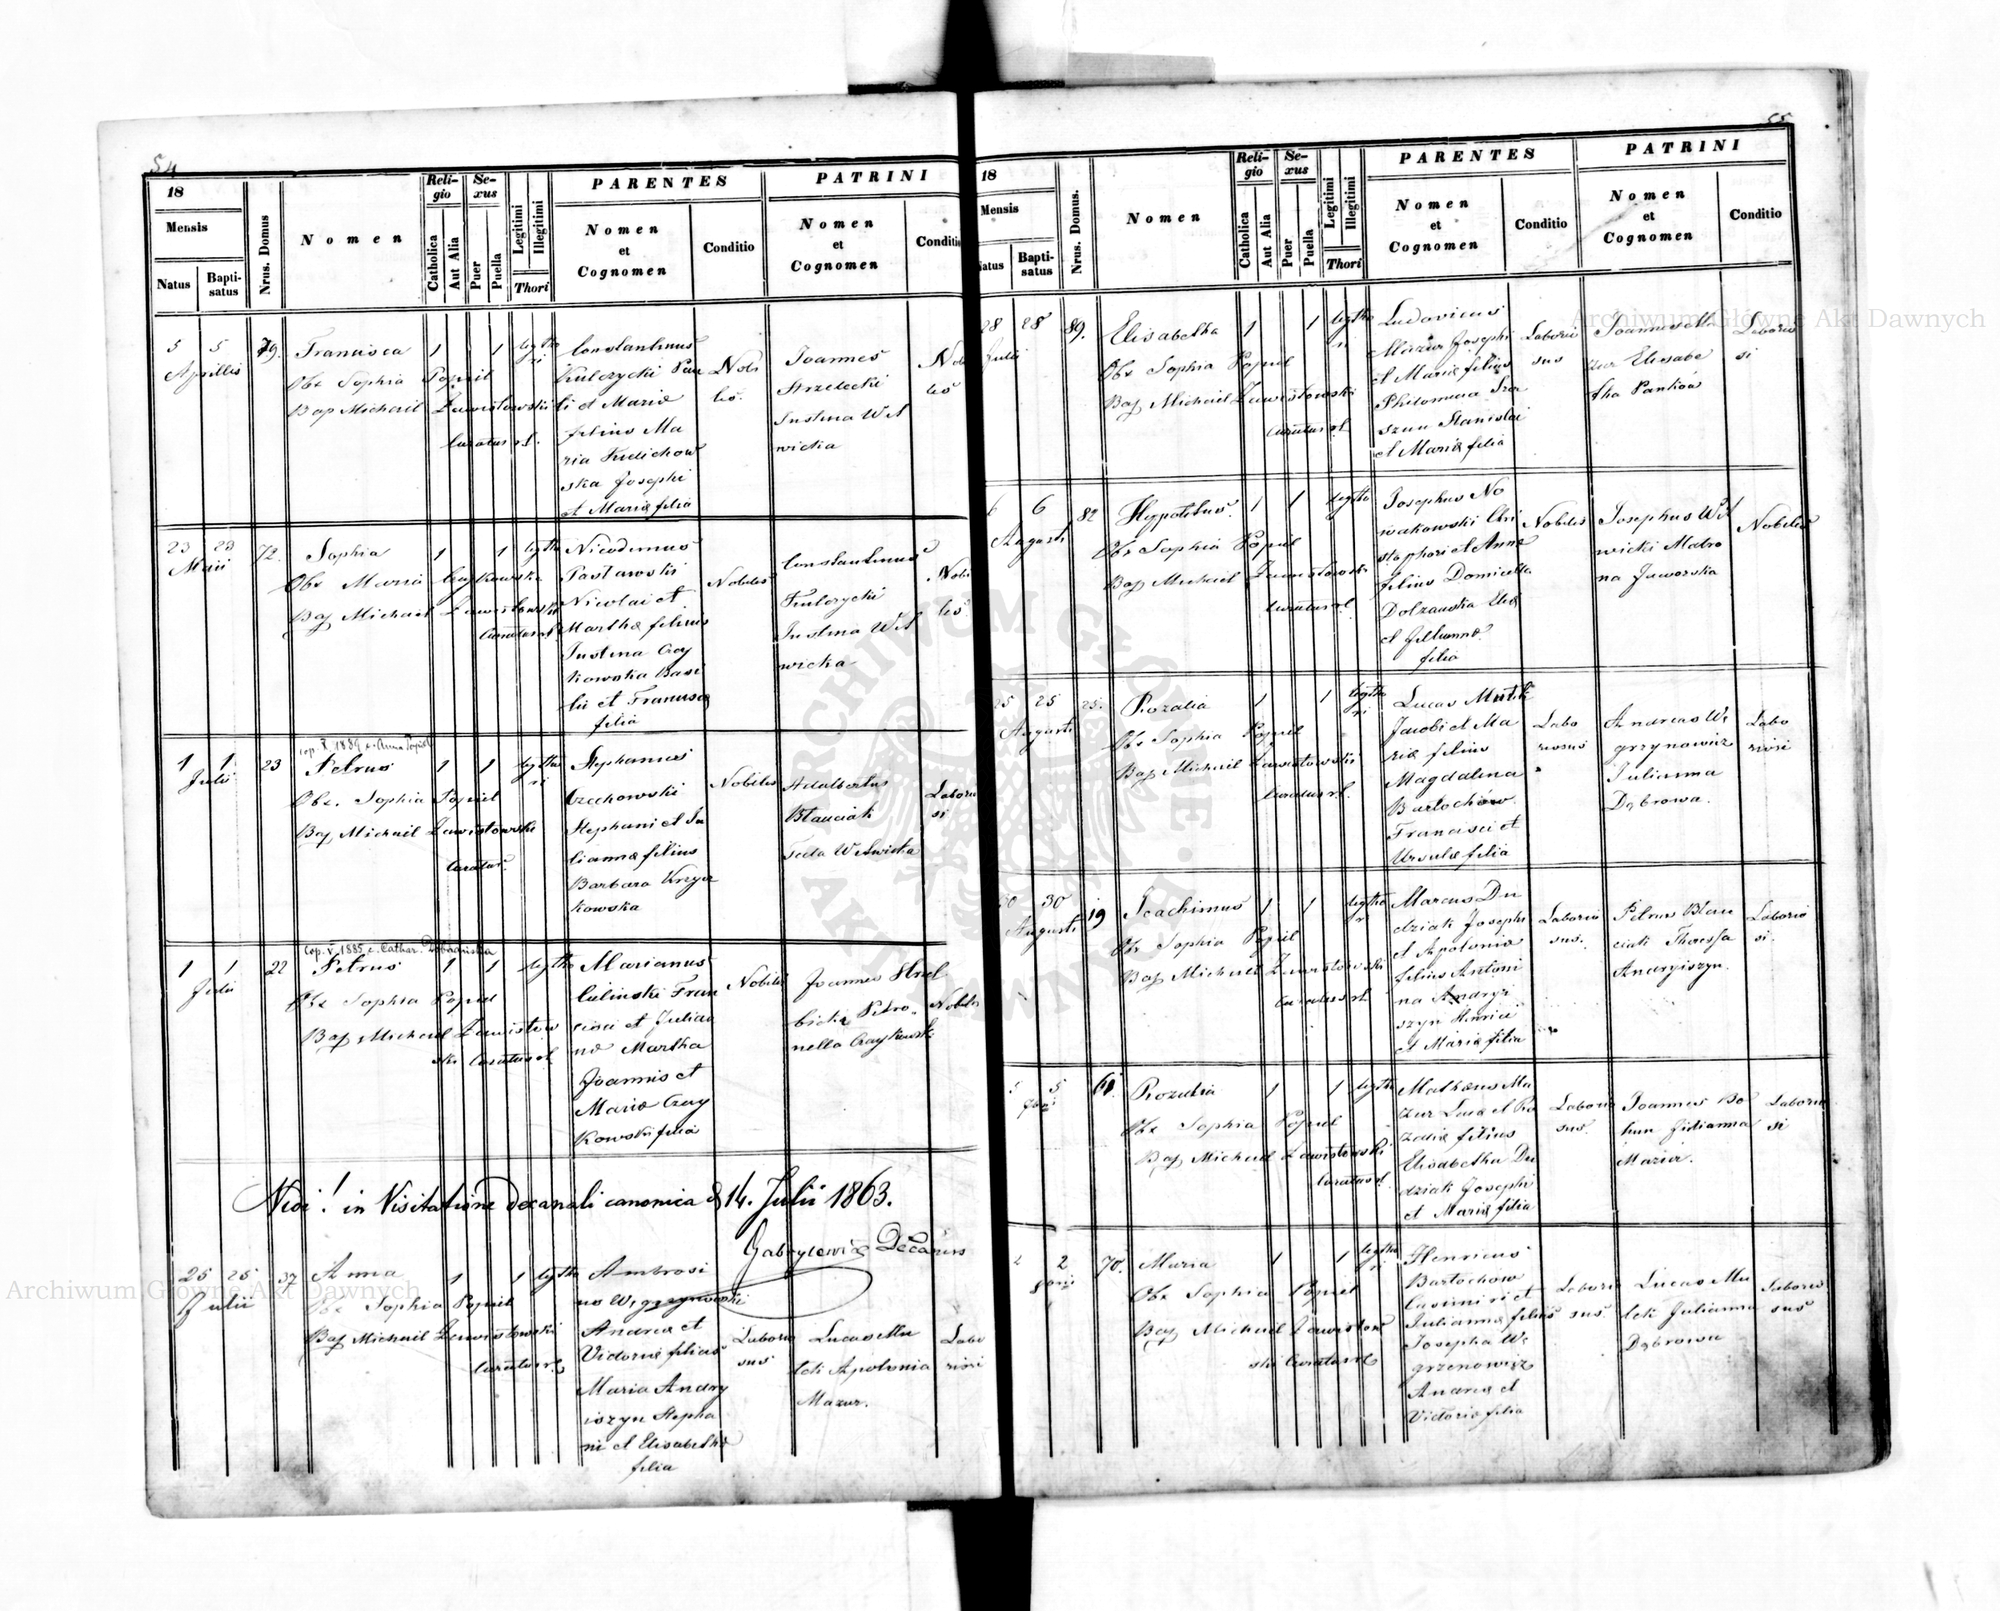 54
18
Mensis
Natus
Bapti-
satus
Nrus. Domus
Nomen
Reli-
gio
Catholica
Aut Alia
Se-
xus
Puer
Puella
Legitimi
Illegitimi
Thori
PARENTES
Nomen
et
Cognomen
Conditio
PATRINI
Nomen
et
Cognomen
Conditio
5 5 79.
Aprillis
Francisca 1 1
Obx Sophia Popiel
Bap Michail Zawistowski
Curatus rl.
Constantinus
Kulczycki Pau
li et Mariæ
filius Ma
ria
ska Josephi
et Mariæ filia
Nobi
les
Joannes
Strzelecki
Justina Wit
wicka
Nobi
les
23 23 72.
Maii
Sophia 1 1
Obx Maria Czaykowska
Bap Michael Zawistowski
Curatus rl
Nicodemus
Pastawski
Nicolai et
Marthæ filius
Justina Czay
kowska Basi
lii et Francisca
filia
Nobiles
Constantinus
Kulczycki
Justina Wit
wicka
Nobi
les
cop. X. 1889 c. Anna Popiel
1 1 23
Julii
Petrus 1 1
Obx. Sophia Popiel
Bap Michail Zawistowski
Curatus.
Stephanus
Czechowski
Stephani et Ju
lianna filius
Barbara Krzyz
kowska
Nobiles
Adalbertus
Blauciak
Tecla Witwicka
Laborio
si
Cop. V. 1885 c. Cathar.
1 1 22
Julii
Petrus 1 1
Obx Sophia Popiel
Bap Michael Zawistow
ski Curatus rl
Marianus
Culinski Fran
cisci et Julian
næ Martha
Joannis et
Mariæ Czay
kowski filia
Nobiles
Joannes Strel
bicki Petro
nella Czaykowski
Nobiles
Vidi! in Visitatione decanali canonica d 14. Julii 1863.
Gabrylewicz Decanus
25 25 37
Julii
Anna 1 1
Obx Sophia Popiel
Bap Michail Zawistowski
Curatus rl
Ambrosi
us Węgrzynowski
Andreæ et
Victoriæ filius
Maria Andry
iszyn Stepha
ni et Elisabethæ
filia
Laborio
sus
Lucas Mu
lek Apolonia
Mazur.
Labo
riosi
55
18
Mensis
Natus
Bapti-
satus
Nrus. Domus.
Nomen
Reli-
gio
Catholica
Aut Alia
Se-
xus
Puer
Puella
Legitimi
Illegitimi
Thori
PARENTES
Nomen
et
Cognomen
Conditio
PATRINI
Nomen
et
Cognomen
Conditio
28 28 89.
Julii
Elisabetha 1 1
Obx Sophia Popiel
Bap Michail Zawistowski
Curatus rl
Ludovicus
Mazur Josephi
et Mariæ filius
Philomena Sza
szun Stanislai
et Mariæ filia
Laborio
sus
Joannes Ma
zur Elisabe
tha Pańków
Laborio
si
6 6 82
Augusti
Hyppolitus 1 1
Obx Sophia Popiel
Bap Michael Zawistowski
Curatus rl
Josephus No
wakowski Chri
stophori et Annæ
filius Domicella
Dolzanska
et
filia
Nobiles
Josephus Wit
wicki Matro
na Jaworska
Nobiles
25 25 25.
Augusti
Rozalia 1 1
Obx Sophia Popiel
Bap Michail Zawistowski
Curatus rl.
Lucas Mulik
Jacobi et Ma
riæ filius
Magdalena
Bartochów
Francisci et
Ursulæ filia
Labo
riosus
Andreas Wę
grzynowicz
Julianna
Dąbrowa.
Labo
riosi
30 30 19
Augusti
Joachimus 1 1
Obx Sophia Popiel
Bap Michael Zawistowski
Curatus rl
Marcus Du
dziak Josephi
et Apolonia
filius Antoni
na Andryi
szyn Henrici
et Mariæ filia
Laborio
sus.
Petrus Blau
ciak Theressa
Andryiszyn.
Laborio
si.
5 5
Rozalia 1 1
Obx Sophia Popiel
Bap Michael Zawistowski
Curatus rl.
Mathæus Ma
zur Lucæ et Ro
zaliæ filius
Elisabetha Du
dziak Josephi
et Mariæ filia
Laborio
sus.
Joannes Bo
hun Julianna
Mazur.
Laborio
si
2 2 70.
Maria 1 1
Obx Sophia Popiel
Bap Michael Zawistow
ski Curatus rl
Henricus
Bartochow
Casimiri et
Juliannæ filius
Josepha Wę
grzenowicz
Andreæ et
Victoriæ filia
Laborio
sus
Lucas Mu
lek Julianna
Dąbrowa
Laborio
sus
Archiwum Główne Akt Dawnych
Archiwum Główne Akt Dawnych
ARCHIWUM GŁÓWNE AKT DAWNYCH